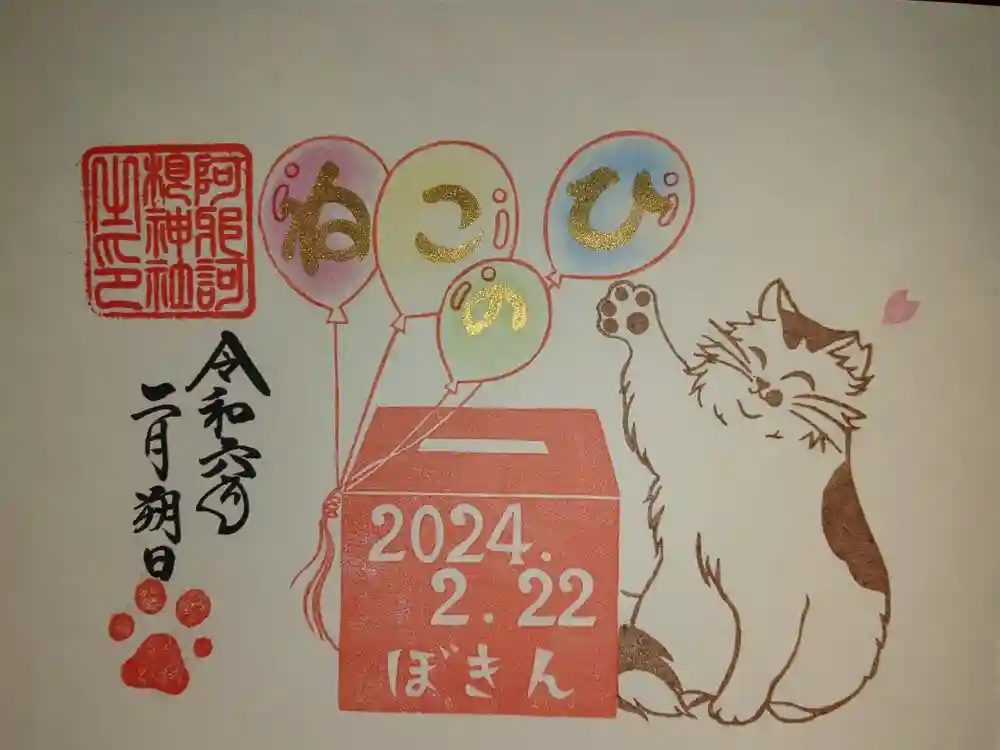 阿耶訶
根神社
之印
ねこのひ
令和六年
二月朔日
2024.
2.22
ぼきん